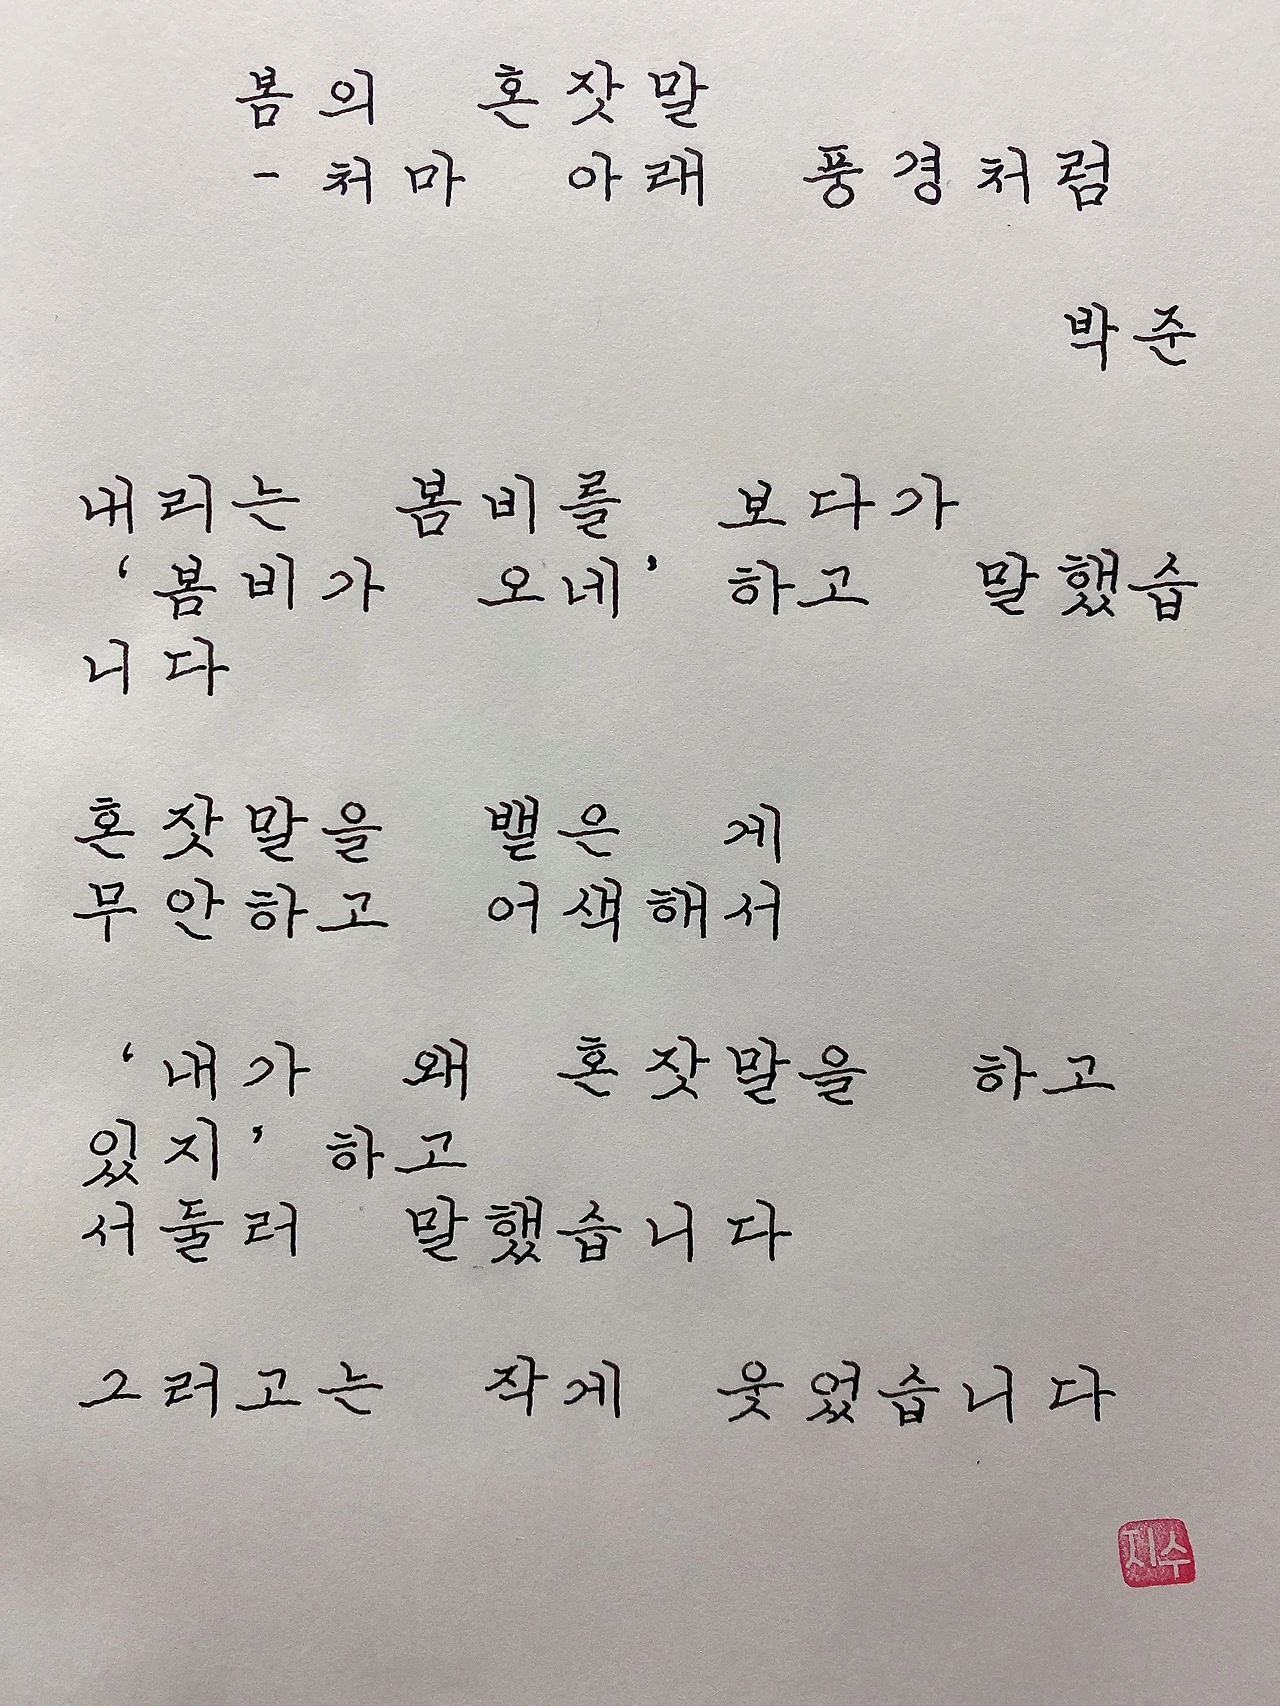 봄의 혼잣말
- 처마 아래 풍경처럼
박준
내리는 봄비를 보다가
‘봄비가 오네’ 하고 말했습
니다
혼잣말을 뱉은 게
무안하고 어색해서
‘내가 왜 혼잣말을 하고
있지’ 하고
서둘러 말했습니다
그러고는 작게 웃었습니다
지수